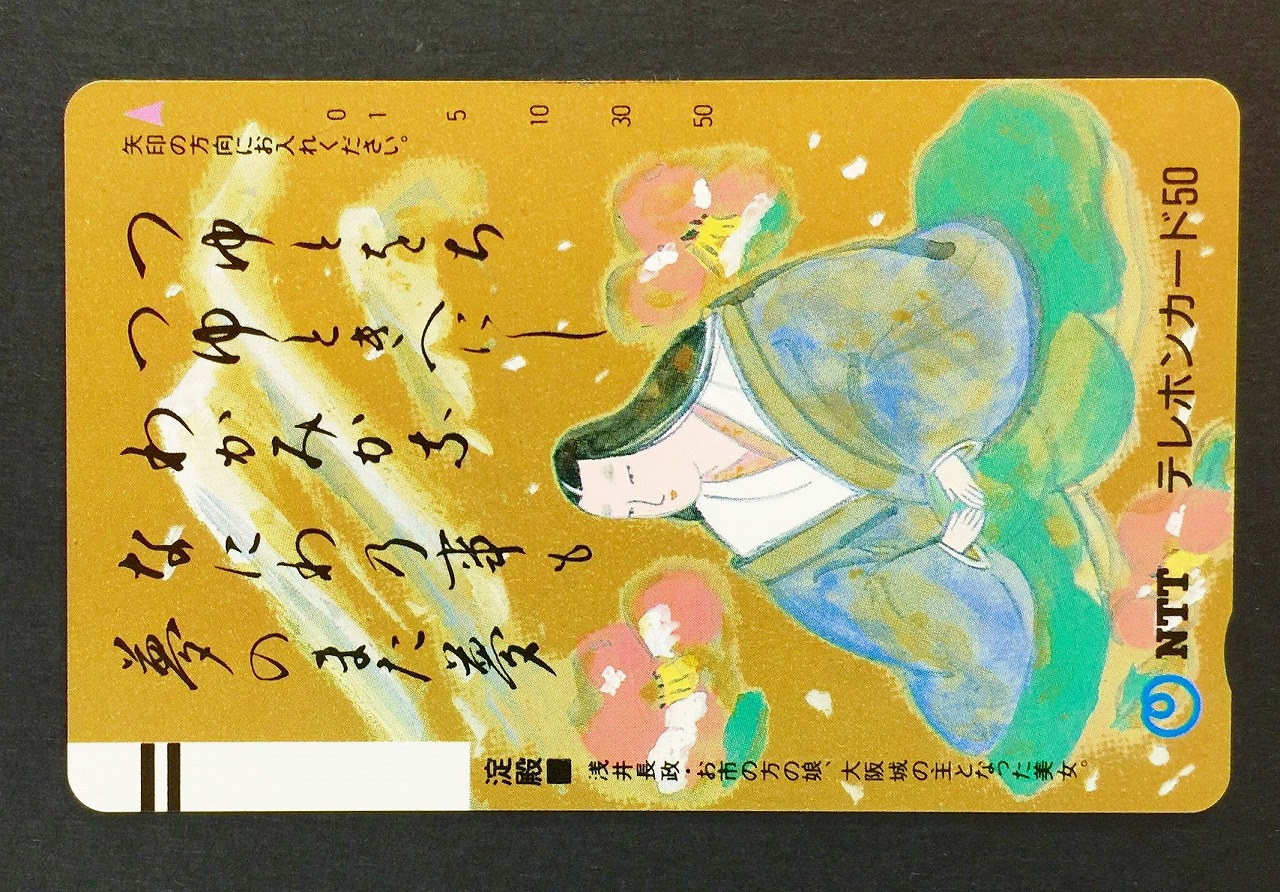 矢印の方向にお入れください。
0 1 5 10 30 50
つゆとをち
つゆときへにし
わかみかな
なにわ乃事も
夢のまた夢
淀殿■
浅井長政・お市の方の娘、大阪城の主となった美女。
NTT テレホンカード50